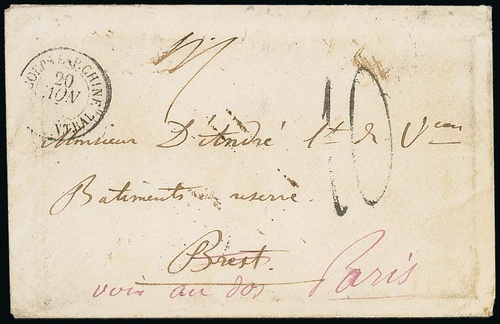 CORPS EXP. CHINE
20
JUN
10
Monsieur D'André Lt de Veau
Batiments de reserve.
Brest.
voir au dos Paris